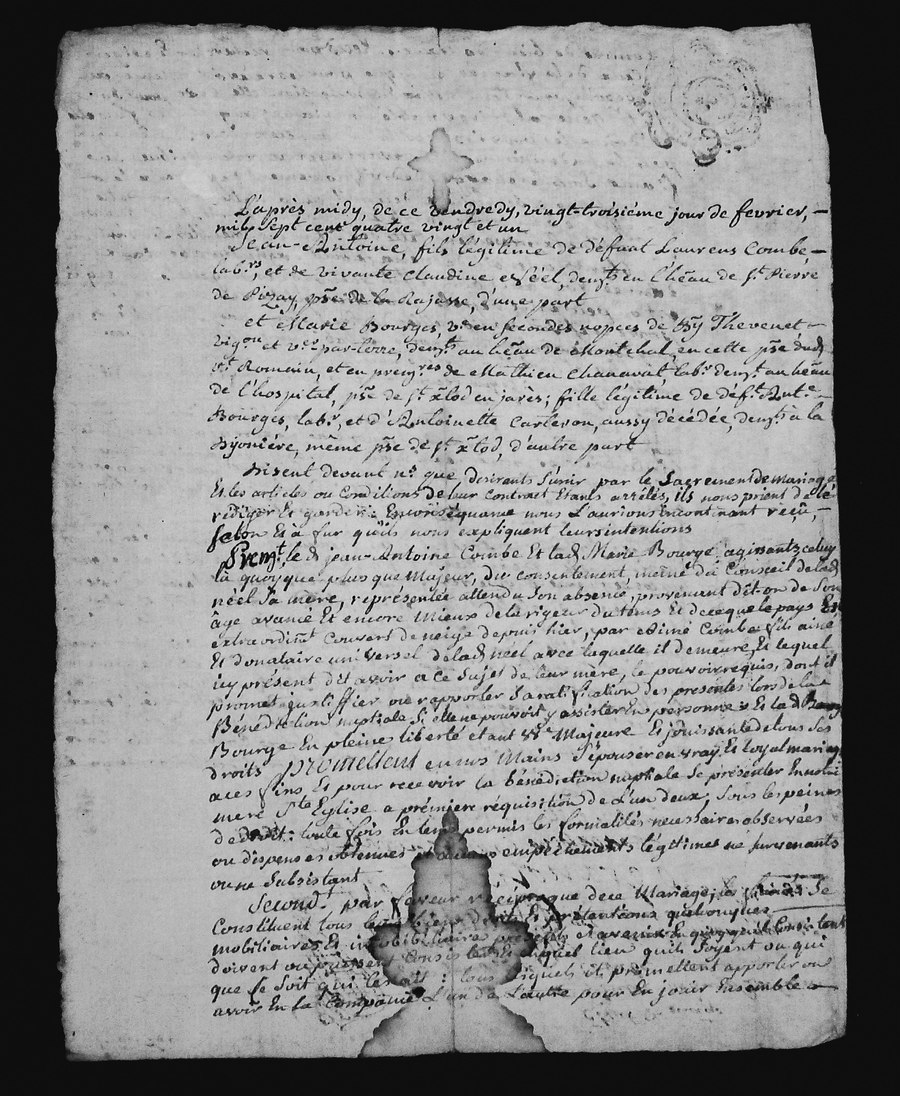 L'après midy, de ce vendredy, vingt-troisiéme jour de fevrier,
mil sept cent quatre vingt et un
Jean-Antoine, fils légitime de défunt Laurens Combe,
lab.r, et de vivante Claudine Néel, dem.ts en l'hêau de S.t Pierre
de Pizay, p.sse de la Rajasse, d'une part
et Marie Bourges, v.e en secondes nopces de Thevenet
vig.on et v.er par-terre, dem.t au hêau de Montchal, en cette p.sse dud.
S.t Romain, et en prem.res de Mathieu Chanavat, lab.r dem.t au hêau
de l'hospital, p.sse de S.t xtod en jarès; fille légitime de déf.t Ant.e
Bourges, lab.r, et d'Antoinette Carteron, aussy décédée, dem.ts à la
Bijoniére, même p.sse de S.t xtod, d'autre part
Disent devant n.s que desirents s'unir par le Sacrement de mariage
Et les articles ou Conditions de leur contract Etants arrêtés, ils nous prient de le
rediger Et garder nous L'aurions reçu,
selon Et à fur qu'ils nous expliquent leurs intentions
Prem.t, led. jean-Antoine Combe Et lad. Marie Bourge, agissants celuy
la quoyque plus que Majeur, du consentement, même du Conseil de lad.
néel Sa mère, représentée attendu Son absence, provenant dit-on de Son
age avancé Et encore Mieux de la rigueur du tems Et de ce que le pays Est
extraordin.t Couvert de neige depuis hier, par Aimé Combe fils ainé
Et donataire universel de lad. néel avec laquelle il demeure, Et lequel
icy présent dit avoir a ce Sujet de leur mère, le pouvoir requis, dont il
promet justiffier ou rapporter Sa ratiffication des presentes lors de la
Bénédiction nuptiale Si elle ne pouvoit y assister En personne; Et lad. Marie
Bourge En pleine liberté etant V.e Majeure Et jouissante de tous Ses
droits promettent en nos Mains S'épouser en vray Et loyal mariage
a ces fins Et pour recevoir la bénédiction nuptiale Se présenter En notre
mere S.te Eglise a prémière requisition de L'un deux, Sous les peines
de droit: toute fois En tems permis les formalités necessaires observées
ou dispenses obtenues empêchements légitimes ne survenants
ou ne Subsistant
Second.t par faveur réciproque de ce Mariage, les Se
Constituent tous les biens droits Et prétentions quelconques
mobiliaires Et immobiliaires présents et avenir En quoy qu'ils Consistent
doivent ou puissent Consister Et en quel lieu qu'ils soyent ou qui
que Se Soit qui les ait: tous lesquels ils promettent apporter ou
avoir En la Compagnie L'un de L'autre pour En jouir Ensemble